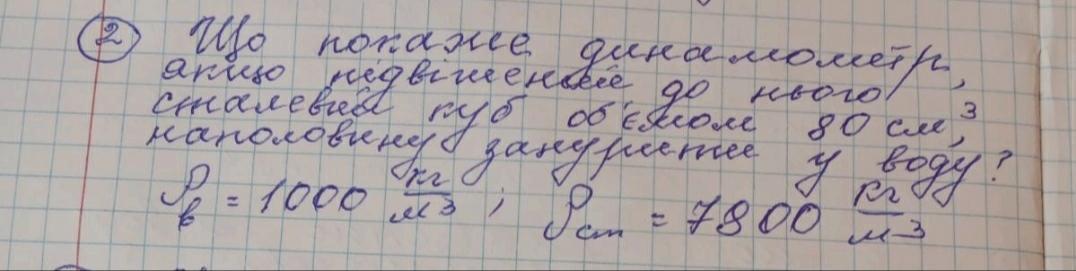 2 Що покаже динамометр,
якщо підвішений до нього
сталевий куб об'ємом 80 см³,
наполовину занурити у воду?
ρв = 1000 кг/м³ ; ρст = 7800 кг/м³